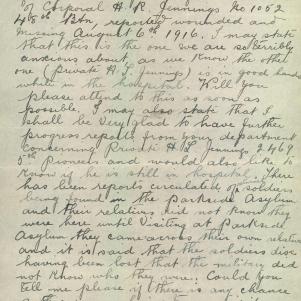 of Corporal H. R. Jennings No 1052
48th Batn, reported wounded and
missing August 6th 1916. I may state
that this is the one we are so terribly
anxious about as we know the other
one (private A. L. Jennings) is in good hands
in the hospital. Will you
please attend to this as soon as
possible. I may also state that I
shall be very glad to have further
progress reports from your department
concerning Private H. L. Jennings 2469
5th Pioneers and would also like to
know if he is still in hospital. There
has been reports circulated of soldiers
being found in the Parkside Asylum
and their relatives did not know they
were here until visiting at Parkside
Asylum they came across their own relatives
and it is said that the soldiers disc
having been lost that the military did
not know who they were. Could you
tell me please if there is any chance